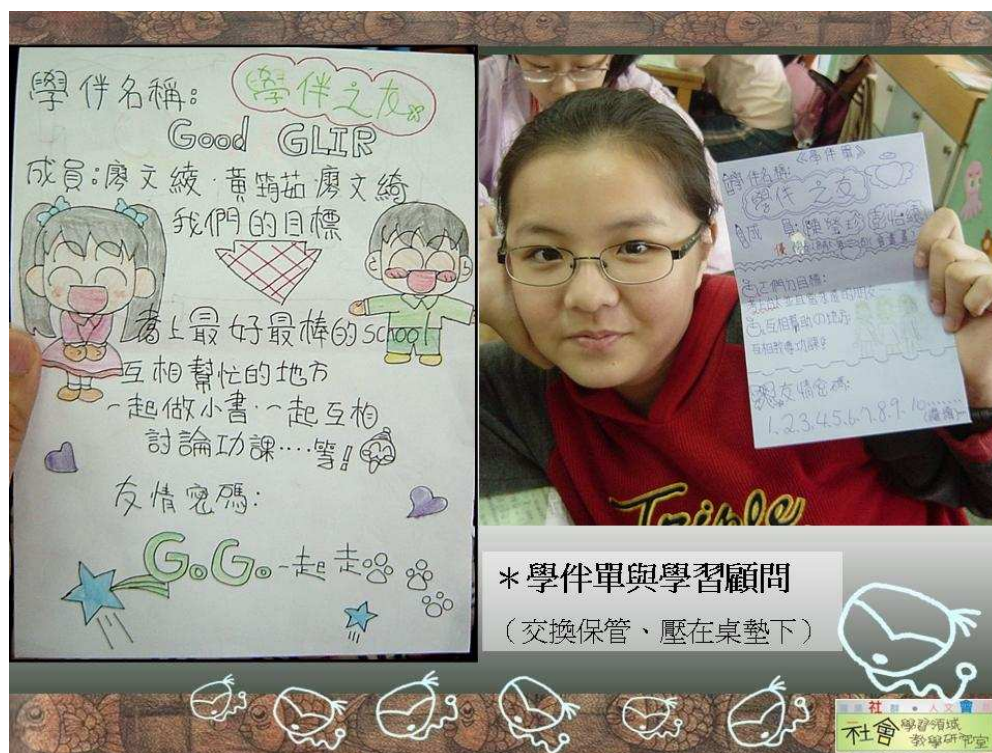 學伴名稱:
學伴之友
Good GLIR
成員:廖文綾·黃筠茹 廖文綺
我們的目標
考上最好最棒的school
互相幫忙的地方
一起做小書·一起互相
討論功課····等!
友情密碼:
GoGo一起走
《學伴單》
學伴名稱:
學伴之友
成員:陳
們的目標:
互相幫助の地方
友情密碼:
1.2.3.4.5.6.7.8.9.10......
Triple
*學伴單與學習顧問
(交換保管、壓在桌墊下)
社 人文 會
社會學習領域
教學研究室